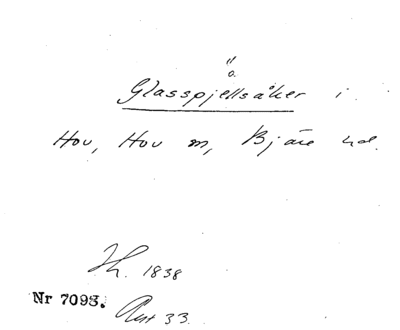 "
a
Glasspjellsåker i
Hov, Hov sn, Bjäre hd.
Jh. 1838
Nr 7093.
Akt 33.